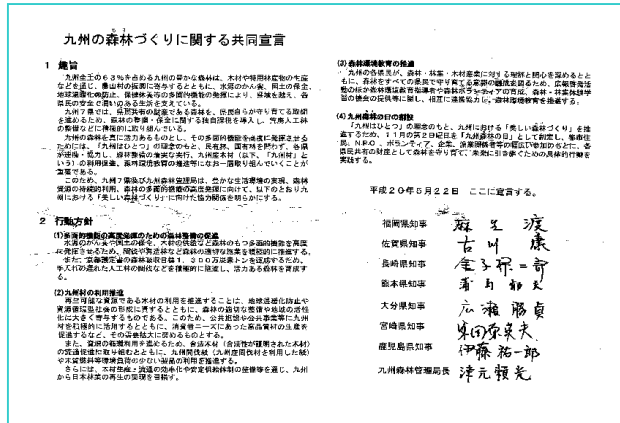 九州の森林づくりに関する共同宣言
1 趣旨
九州全土の63%を占める九州の豊かな森林は、木材や特用林産物の生産
などを通じ、農山村の振興に寄与するとともに、水源のかん養、国土の保全、
地球温暖化の防止、保健休養等の多面的機能の発揮により、県境を越え、各
県民の安全で潤いのある生活を支えている。
九州7県では、県民共有の財産である森林を、県民自らが守り育てる取組
を進めるため、森林の整備・保全に関する独自課税を導入し、荒廃人工林
の整備などに積極的に取り組んでいる。
九州の森林を真に活力あるものとし、その多面的機能を高度に発揮させる
ためには、「九州はひとつ」の理念のもと、民有林、国有林を問わず、各県
が連携・協力し、森林整備の着実な実行、九州産木材(以下、「九州材」と
いう)の利用促進、森林環境教育の推進等になお一層取り組んでいくことが
重要である。
このため、九州7県及び九州森林管理局は、豊かな生活環境の実現、森林
資源の持続的利用、森林の多面的機能の高度発揮に向けて、以下のとおり九
州における「美しい森林づくり」に向けた協力関係を明らかにする。
2 行動方針
(1)多面的機能の高度発揮のための森林整備の促進
水源のかん養や国土の保全、木材の供給など森林のもつ多面的機能を高度
に発揮させるため、間伐や再造林など森林の適切な施業を積極的に推進する。
また、京都議定書の森林吸収目標1,300万炭素トンを達成するため、
手入れの遅れた人工林の間伐などを積極的に推進し、活力ある森林を育成す
る。
(2)九州材の利用推進
再生可能な資源である木材の利用を推進することは、地球温暖化防止や
資源循環型社会の形成に資するとともに、森林の適切な整備や地域の活性
化に大きく寄与するものである。このため、公共施設や公共事業等に九州
材を積極的に活用するとともに、消費者ニーズにあった高品質材の生産を
促進するなど、その需要拡大に努めるものとする。
また、資源の循環利用を進めるため、合法木材(合法性が証明された木材)
の流通促進に取り組むとともに、九州間伐紙(九州産間伐材を利用した紙)
や木質燃料等環境負荷の少ない製品の利用を推進する。
さらには、木材生産・流通の効率化や安定供給体制の整備等を通じ、九州
から日本林業の再生の実現を目指す。
(3)森林環境教育の推進
九州の各県民が、森林・林業・木材産業に対する理解と関心を深めるとと
もに、森林をすべての県民で守り育てる意識の醸成を図るため、広報啓発活
動のほか森林環境教育指導者や森林ボランティアの育成、森林・林業体験学
習の機会の提供等に関し、相互に連携協力し、森林環境教育を推進する。
(4)九州森林の日の創設
「九州はひとつ」の理念のもと、九州における「美しい森林づくり」を推
進するため、11月の第2日曜日を「九州森林の日」として制定し、都市住
民、NPO、ボランティア、企業、漁業関係者等の幅広い参加のもとに、各
県民共有の財産として森林を守り育て、未来に引き継ぐための具体的行動を
実践する。
平成20年5月22日 ここに宣言する。
福岡県知事 麻生渡
佐賀県知事 古川康
長崎県知事 金子原二郎
熊本県知事 蒲島郁夫
大分県知事 広瀬勝貞
宮崎県知事 東国原英夫
鹿児島県知事 伊藤祐一郎
九州森林管理局長 津元賴光